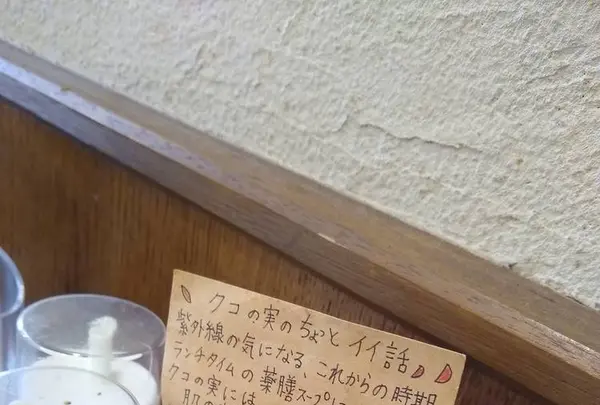 クコの実のちょっとイイ話
紫外線の気になる、これからの時期
ランチタイムの薬膳スープに
クコの実には
肌の